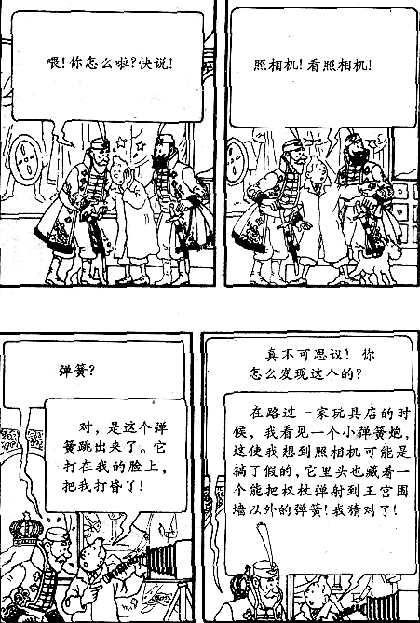 喂！你怎么啦？快说！
照相机！看照相机！
弹簧？
对，是这个弹
簧跳出来了。它
打在我的脸上，
把我打昏了！
真不可思议！你
怎么发现这个的？
在路过一家玩具店的时
候，我看见一个小弹簧炮，
这使我想到照相机可能是
搞了假的，它里头也藏着一
个能把权杖弹射到王宫围
墙以外的弹簧！我猜对了！